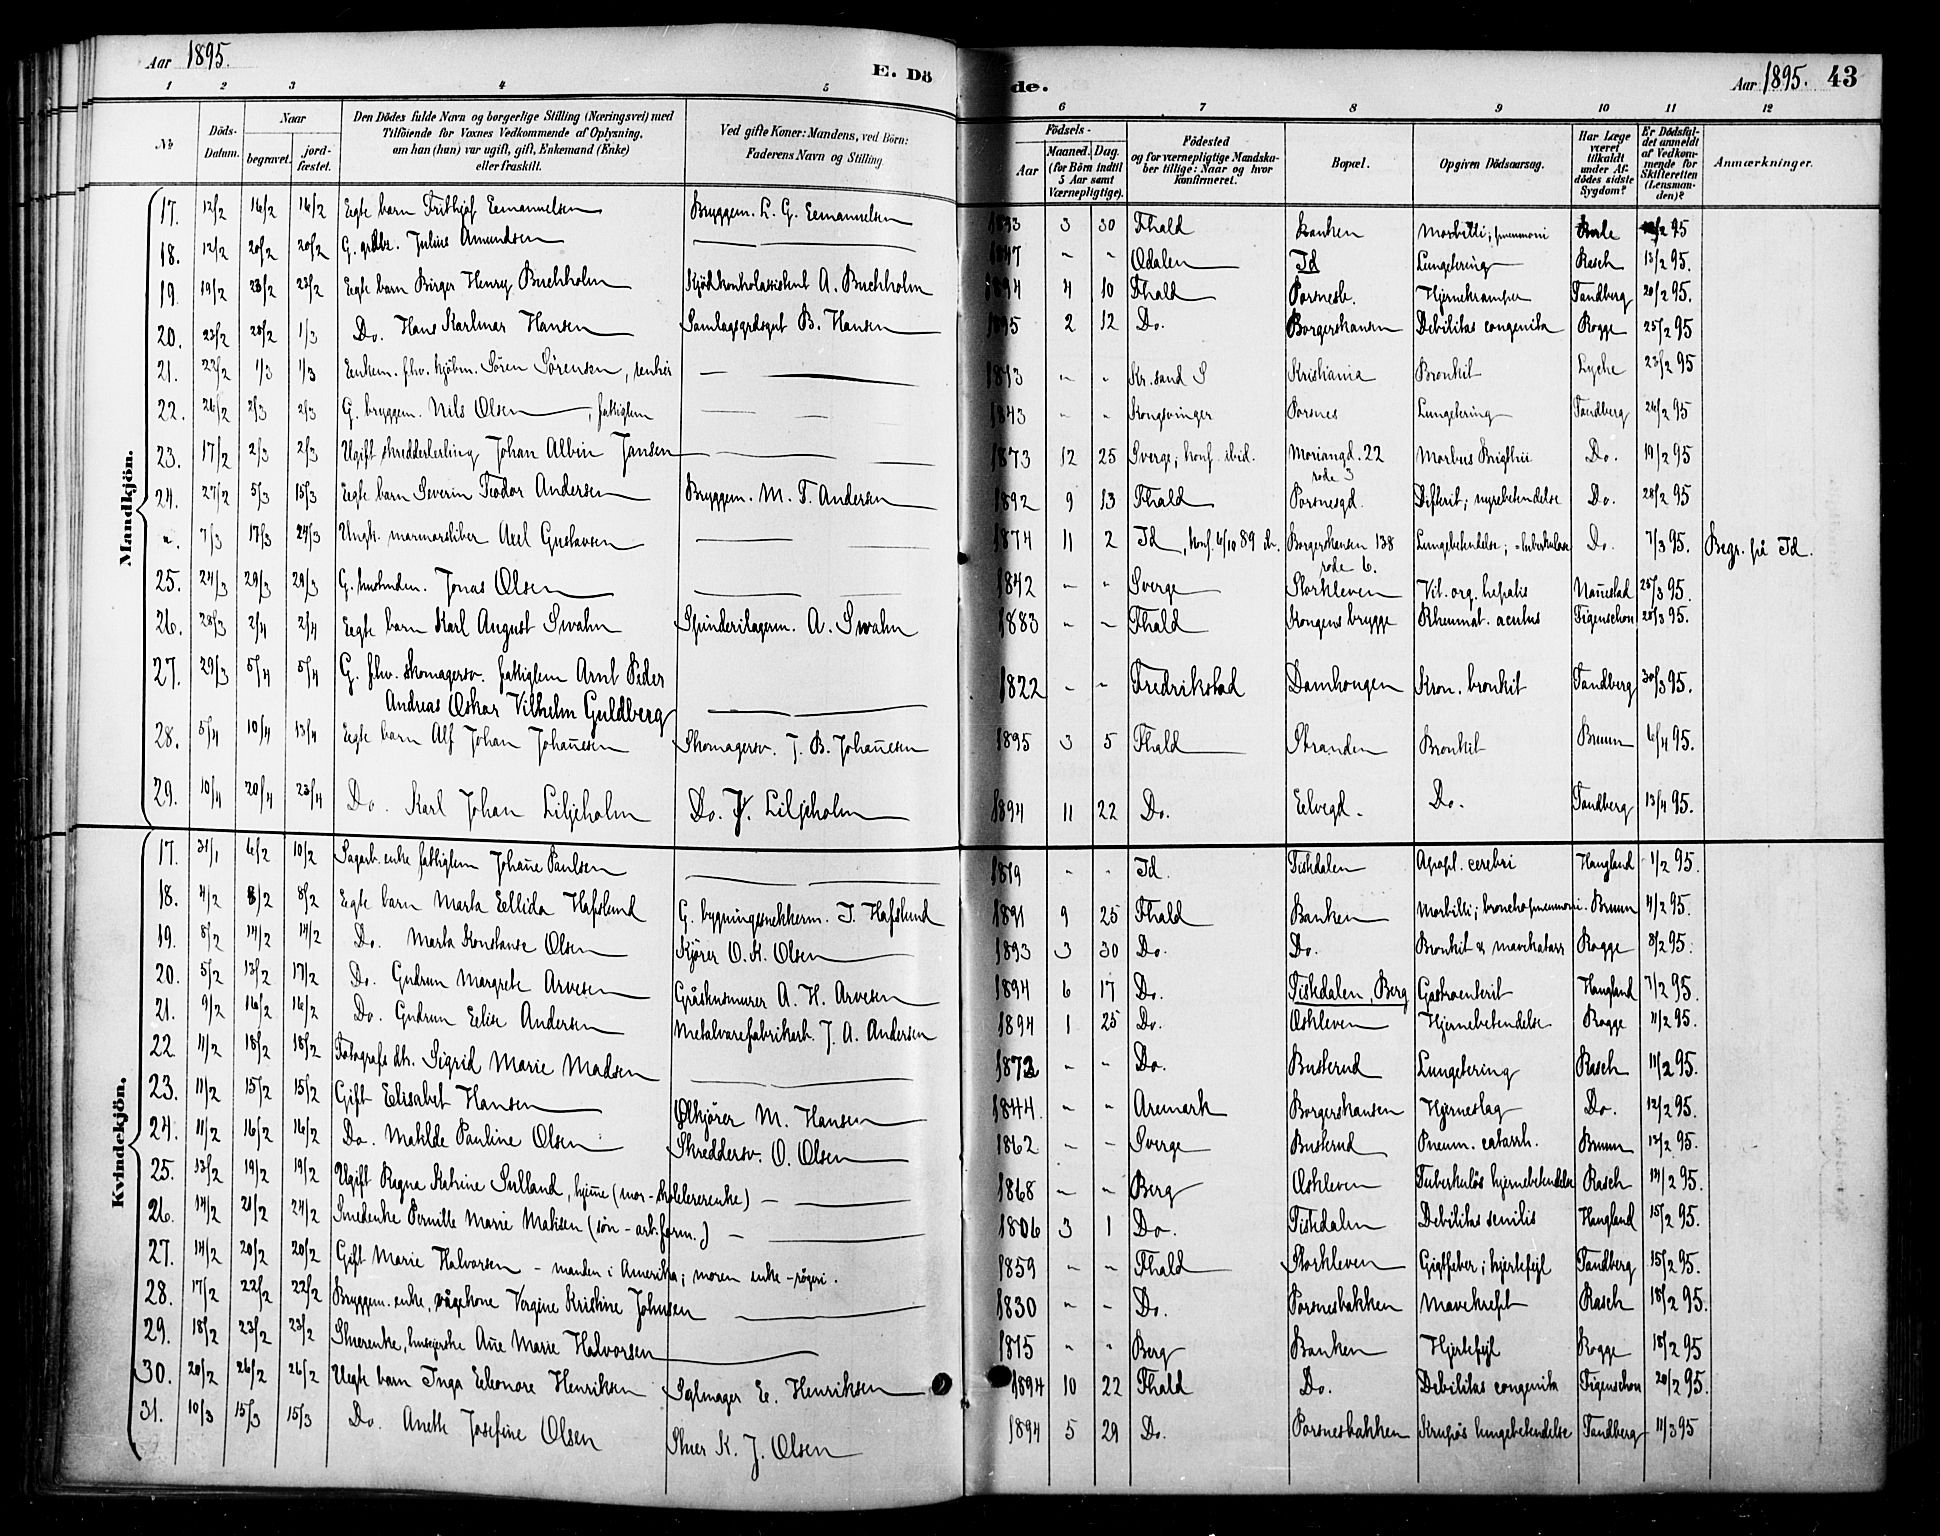 Aar 1895.
E. Dö
de.
Aar 1895. 43
1 2 3 4 5
6 7 8 9 10 11 12
No
Döds-
Datum.
Naar
begravet.
jord-
fæstet.
Den Dödes fulde Navn og borgerlige Stilling (Næringsvei) med
Tilföiende for Voxnes Vedkommende af Oplysning,
om han (hun) var ugift, gift, Enkemand (Enke)
eller fraskilt.
Ved gifte Koner: Mandens, ved Börn:
Faderens Navn og Stilling.
Födsels-
Aar
Maaned. Dag.
(for Börn indtil
5 Aar samt
Værnepligtige).
Födested
og for værnepligtige Mandska-
ber tillige: Naar og hvor
konfirmeret.
Bopæl.
Opgiven Dödsaarsag.
Har Læge
været
tilkaldt
under Af-
dödes sidste
Sygdom?
Er Dödsfal-
det anmeldt
af Vedkom-
mende for
Skifteretten
(Lensman-
den)?
Anmærkninger.
Mandkjön.
17. 12/2 16/2 16/2 Egte barn Frithjof Eemanuelsen Bryggem. L. G. Eemanuelsen 1893 3 30 Fhald Banken Morbilli; pneumoni 95
18. 12/2 20/2 20/2 G. grdbr. Julius Amundsen 1847 " " Odalen Id Lungetering Rasch 13/2 95.
19. 19/2 23/2 23/2 Egte barn Birger Henry Buchholm Kjödkontrolassistent A. Buchholm 1894 4 10 Fhald Porsnesb. Hjernekramper Tandberg 20/2 95.
20. 23/2 28/2 1/3 Do. Hans Karlmar Hansen Samlagsgrdsgut B. Hansen 1895 2 12 Do. Borgershansen Debilitas congenita Rogge 25/2 95
21. 22/2 1/3 1/3 Eenkem. fhv. kjöbm. Sören Sörensen, rentier 1813 " " Kr.sand S Kristiania Bronkit Lyche 23/2 95
22. 26/2 2/3 2/3 G. bryggem. Nils Olsen, fattiglem 1843 " " Kongsvinger Porsnes Lungetering Tandberg 26/2 95
23. 17/2 2/3 2/3 Ugift skredderlerling Johan Albin Jansen 1873 12 25 Sverge; konf. ibid. Moriangd. 22 rode 3 Morbus Brigthii Do. 19/2 95
24. 27/2 5/3 15/3 Egte barn Severin Teodor Andersen Bryggem. M. T. Andersen 1892 9 13 Fhald Porsnesgd. Difterit; nyrebetendelse Do. 28/2 95
". 7/3 17/3 24/3 Ungk. marmorsliber Axel Gustavsen 1874 11 2 Id, konf. 6/10 89 Borgershansen 138 rode 6. Lungebetendelse; tuberkulose Do. 7/3 95. Begr. på Id.
25. 24/3 29/3 29/3 G. husmden. Jonas Olsen 1842 " " Sverge Storkleven Vit. org. hepatis Naustad 25/3 95.
26. 28/3 2/4 2/4 Egte barn Karl August Swahn Spinderilagerm. A. Swahn 1883 " " Fhald Kongens brygge Rheumat. acutus Figenschou 28/3 95.
27. 29/3 5/4 5/4 G. fhv. skomagersv. fattiglem Arnt Peder
Andreas Oskar Vilhelm Guldberg 1822 " " Fredrikstad Damhougen Kron. bronkit Tandberg 30/3 95.
28. 5/4 10/4 13/4 Egte barn Alf Johan Johannesen Skomagersv. J. B. Johannesen 1895 3 5 Fhald Stranden Bronkit Bruun 6/4 95.
29. 10/4 20/4 23/4 Do. Karl Johan Liljeholm Do. J. Liljeholm 1894 11 22 Do. Eelvegd. Do. Tandberg 13/4 95.
Kvindekjön.
17. 31/1 6/2 10/2 Sagarb. enke fattiglem Johane Paulsen 1819 " " Id. Tistedalen Apopl. cerebri Haugland 1/2 95.
18. 4/2 8/2 8/2 Egte barn Marta Eellida Hafslund G. bygningssnekkerm. I. Hafslund 1891 9 25 Fhald Banken Morbilli; bronchopneumoni. Bruun 4/2 95.
19. 8/2 14/2 14/2 Do. Marta Konstanse Olsen Kjörer O. K. Olsen 1893 3 30 Do. Do. Bronkit & mavekatarr Rogge 8/2 95.
20. 5/2 13/2 17/2 Do. Gudrun Margrete Arvesen Gråstensmurer A. H. Arvesen 1894 6 17 Do. Tistedalen, Berg Gastroenterit Haugland 7/2 95.
21. 9/2 16/2 16/2 Do. Gudrun Eelise Andersen Metalvarefabrikarb. J. A. Andersen 1894 1 25 Do. Oskleven Hjernebetendelse Rogge 11/2 95.
22 11/2 18/2 18/2 Fotografs dtr. Sigrid Marie Madsen 1872 " " Do. Busterud Lungetering Rasch 11/2 95.
23. 11/2 15/2 15/2 Gift Eelisabet Hansen Ölkjörer M. Hansen 1844. " " Aremark Borgershansen Hjerneslag Do. 12/2 95.
24. 11/2 16/2 16/2 Do. Matilde Pauline Olsen Skreddersv. O. Olsen 1862 " " Sverge Busterud Pneum. catarrh. Bruun 13/2 95.
25. 13/2 19/2 19/2 Ugift Ragna Katrine Sulland, hjeme (mor - skolelererenke) 1868 " " Berg Oskleven Tuberkulös hjernebetendelse Rasch 14/2 95.
26. 14/2 21/2 24/2 Smedenke Pernille Marie Matisen (sön - arb.form.) 1806 3 1 Do. Tistedalen Debilitas senilis Haugland 15/2 95.
27. 14/2 20/2 20/2 Gift Marie Halvorsen - manden i Amerika; moren enke - rögeri. 1859 " " Fhald Storkleven Gigtfeber; hjertefejl Tandberg 15/2 95.
28. 17/2 22/2 22/2 Bryggem. enke, vågekone Vergine Kristine Johnsen 1830 " " Do. Porsnesbakken Mavekreft Rasch 18/2 95.
29. 18/2 23/2 23/2 Stuerenke, huseierske Ane Marie Halvorsen 1815 " " Berg Banken Hjertefejl Rogge 18/2 95
30. 20/2 26/2 26/2 Uegte barn Inga Eleonore Henriksen Seglmager Ee. Henriksen 1894 10 22 Fhald Do. Debilitas congenita Figenschou 20/2 95.
31. 10/3 15/3 15/3 Do. Anette Josefine Olsen Stuer K. J. Olsen 1894 5 29 Do. Porsnesbakken Krupös lungebetendelse Tandberg 11/3 95